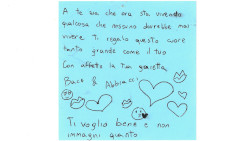 A te zia che ora stai vivendo
qualcosa che nessuno dovrebbe mai
vivere Ti regalo questo cuore
tanto grande come il tuo
Con affetto la tua
Baci & Abbracci
Ti voglio bene e non
immagini quanto